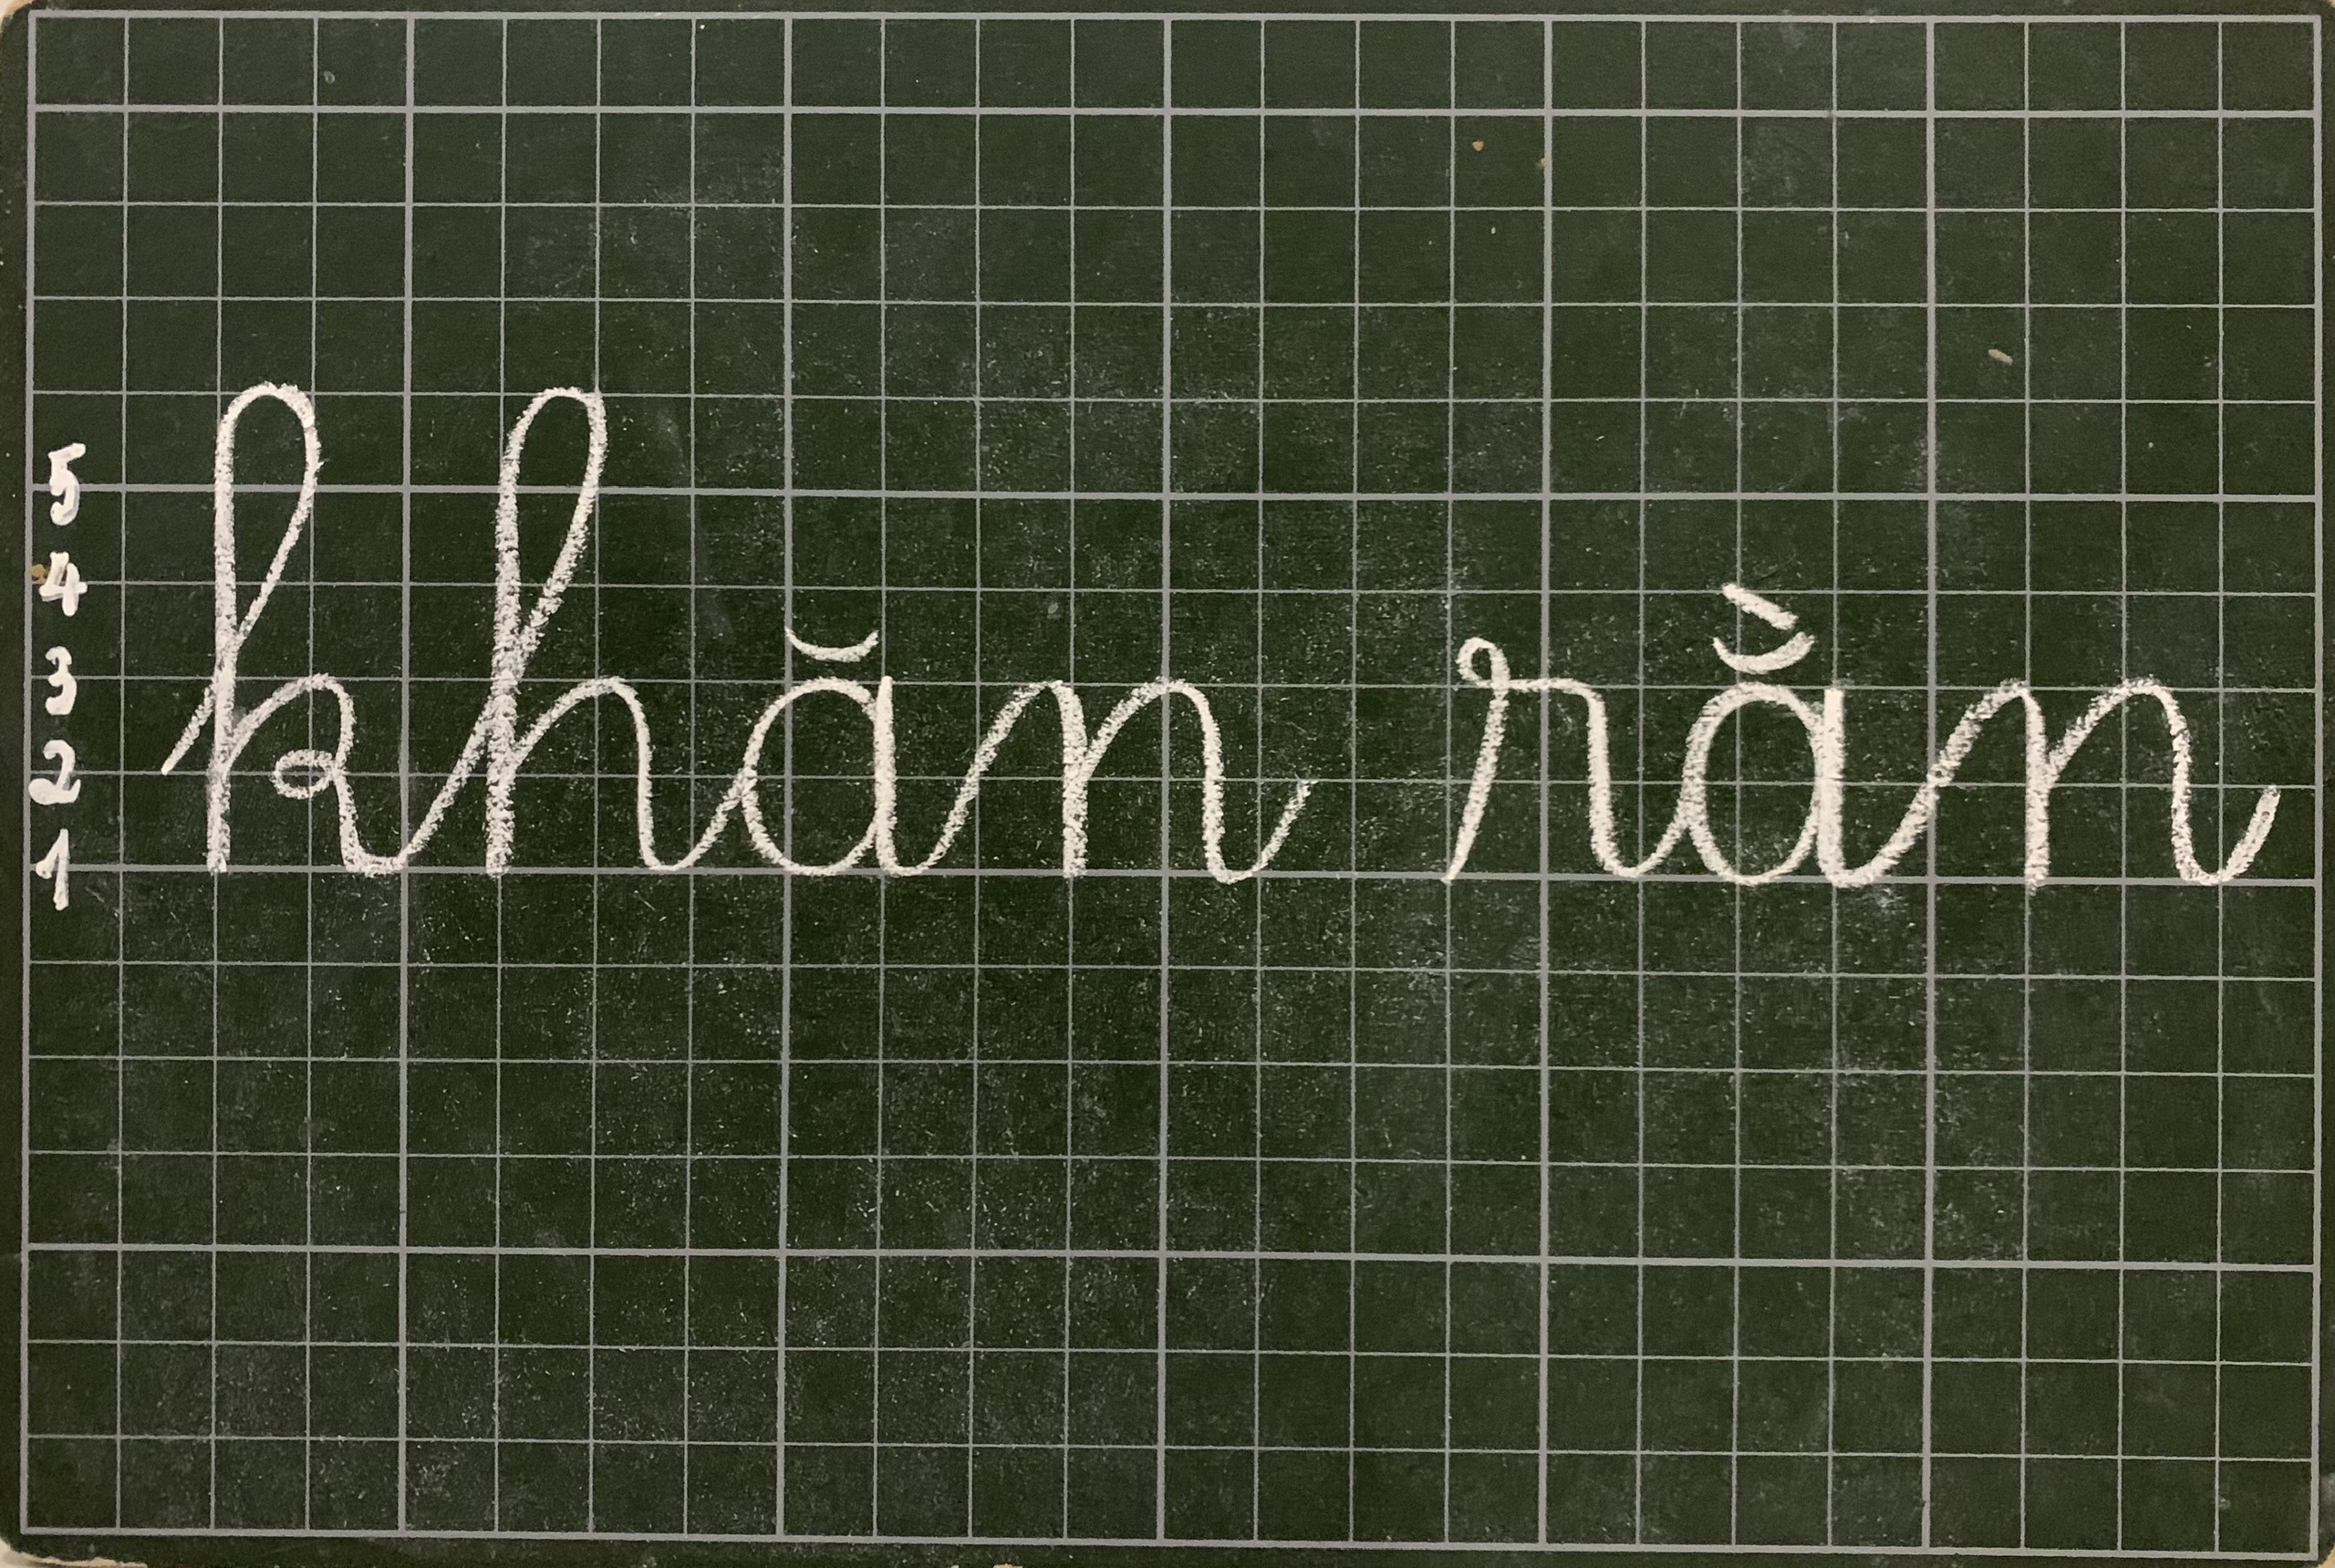 5
4
3
2
1
khăn rằn